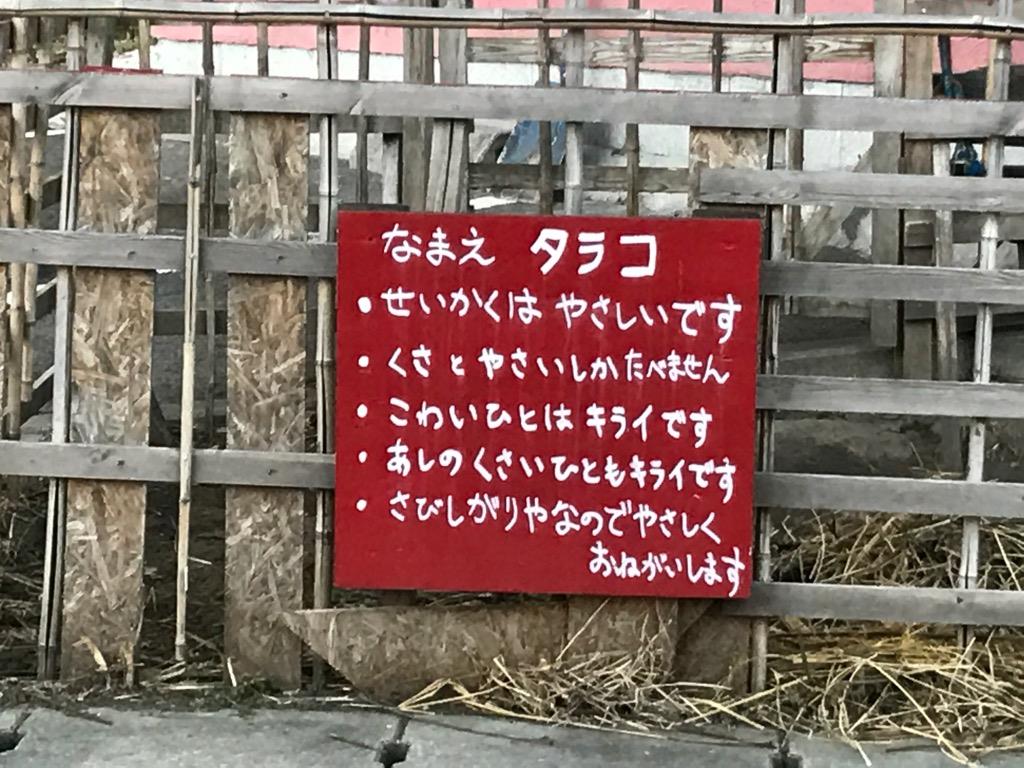 なまえ タラコ
・せいかくは やさしいです
・くさとやさいしかたべません
・こわいひとは キライです
・あしのくさいひともキライです
・さびしがりやなのでやさしく
おねがいします